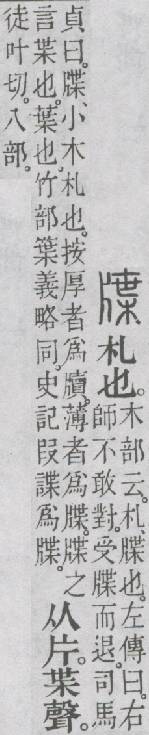 牒札也。
木部云。札、牒也。左傳曰。右
師不敢對。受牒而退。司馬
貞曰。牒、小木札也。按厚者爲牘。薄者爲牒。牒之
言枼也。葉也。竹部䈎義略同。史記叚諜爲牒。
从片。枼聲。
徒叶切。八部。